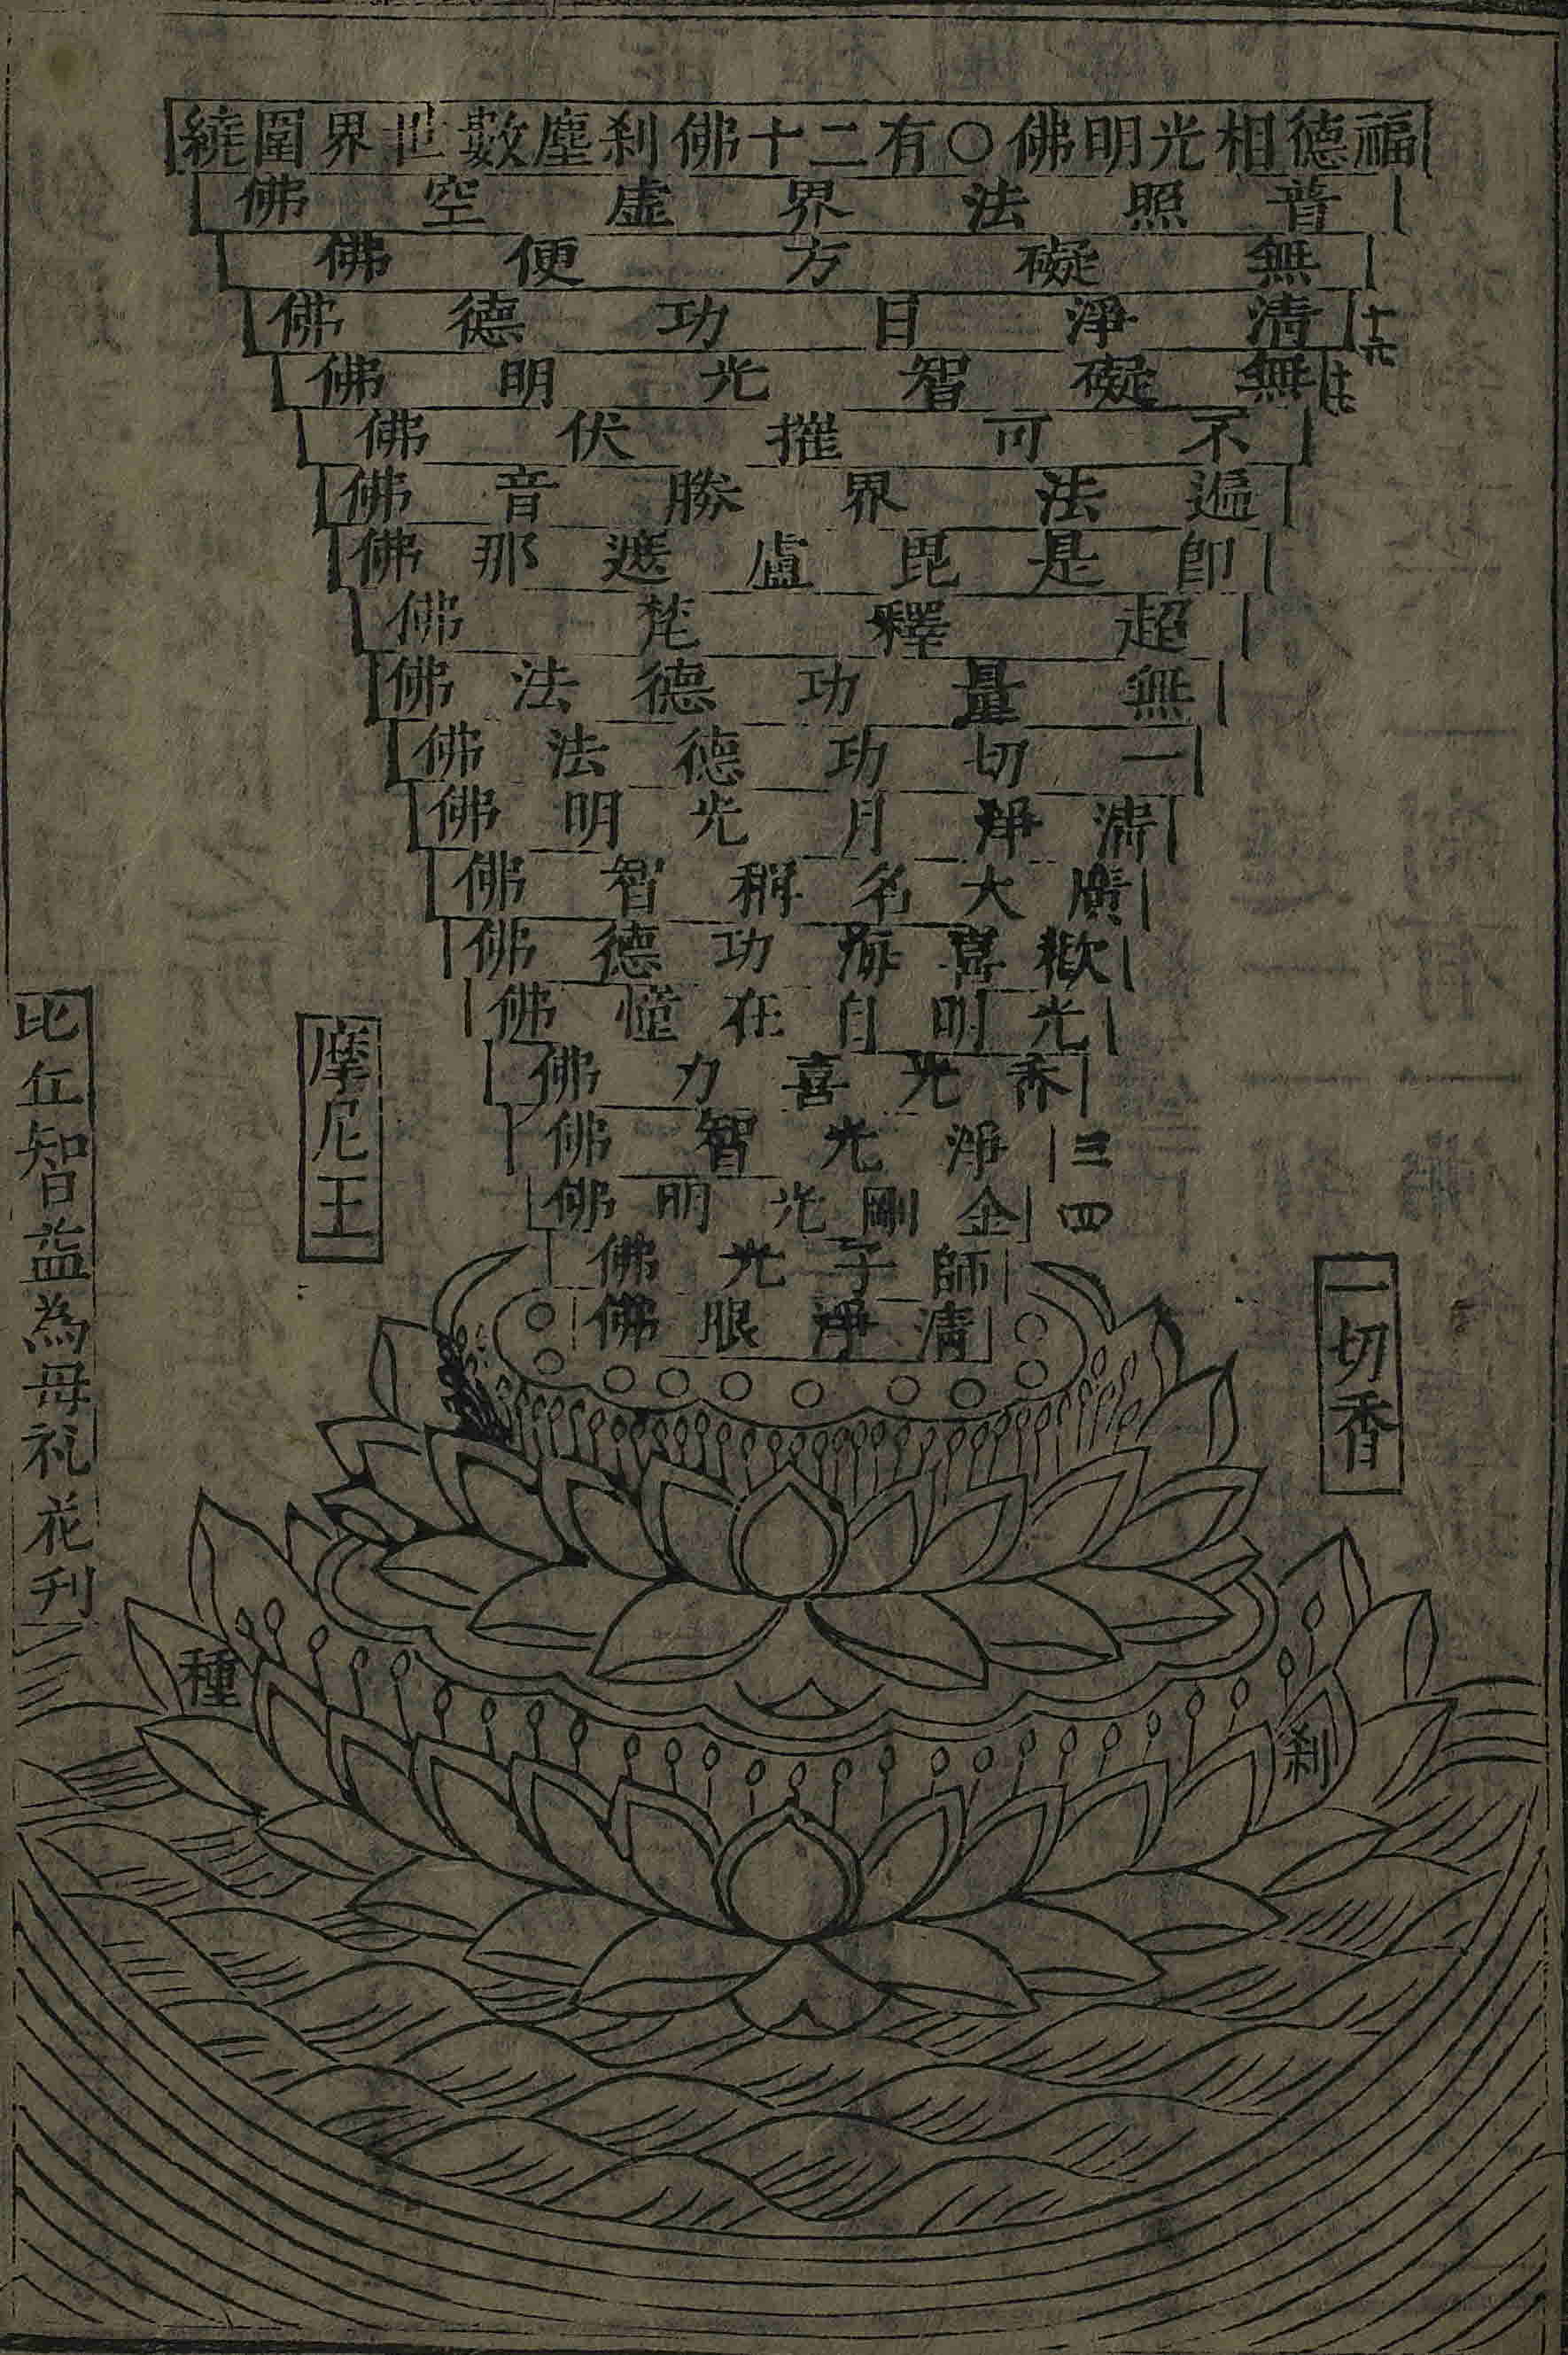 福德相光明佛○有二十佛刹塵數世界圍繞
普照法界虛空佛
無礙方便佛
清淨目功德佛
十六
無礙智光明佛
不可摧伏佛
遍法界勝音佛
卽是毘盧遮那佛
超釋梵佛
無量功德法佛
一切功德法佛
清淨月光明佛
廣大名稱智佛
歡喜海功德佛
光明自在幢佛
香光喜力佛
淨光智佛
三
金剛光明佛
四
師子光佛
清淨眼佛
一切香
摩尼王
刹
種
比丘智益為母礼花刋